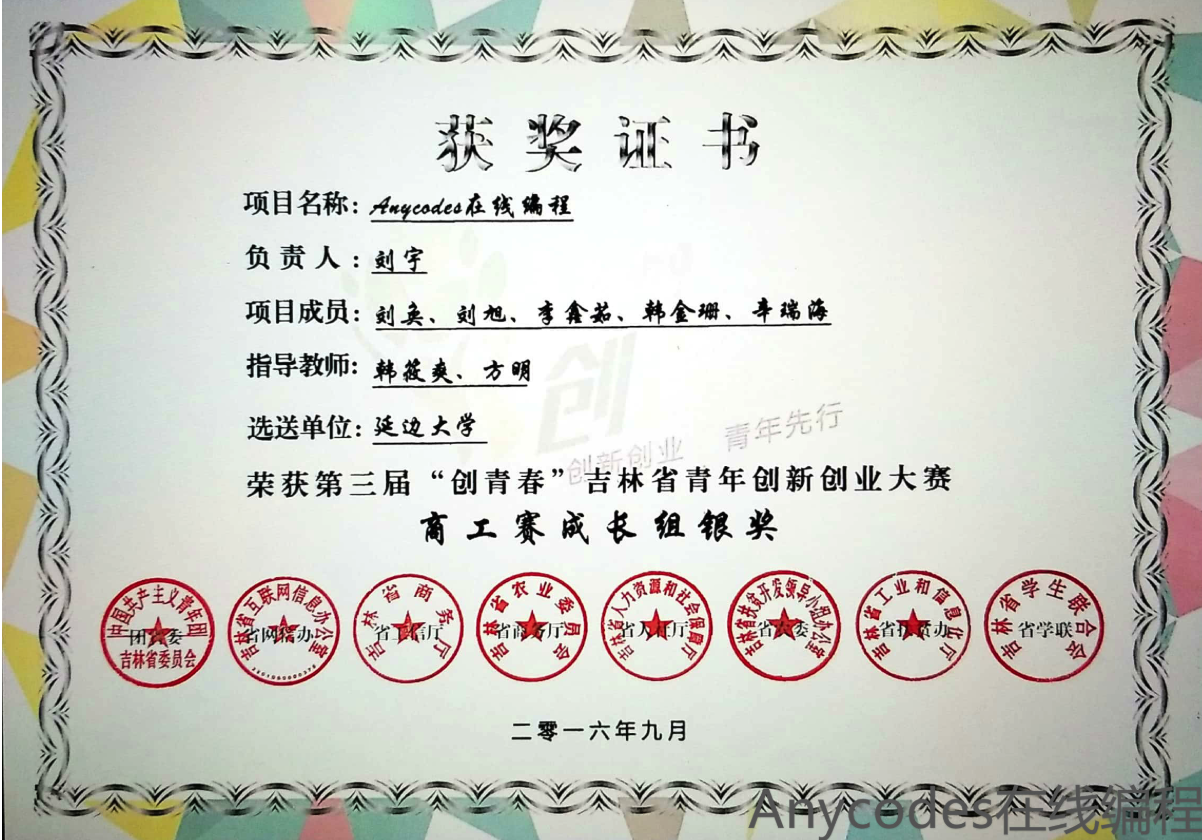 获奖证书
项目名称：Anycodes在线编程
负责人：刘宇
项目成员：刘奂、刘旭、李鑫茹、韩金珊、辛瑞海
指导教师：韩筱爽、方明
选送单位：延边大学
创
创新创业 青年先行
荣获第三届“创青春”吉林省青年创新创业大赛
商工赛成长组银奖
中国共产主义青年团吉林省委员会
团省委
吉林省互联网信息办公室
省网信办
吉林省商务厅
省工信厅
吉林省农业委员会
省商务厅
吉林省人力资源和社会保障厅
省人社厅
吉林省扶贫开发领导小组办公室
省农委
吉林省工业和信息化厅
省扶贫办
吉林省学生联合会
省学联
二零一六年九月
Anycodes在线编程